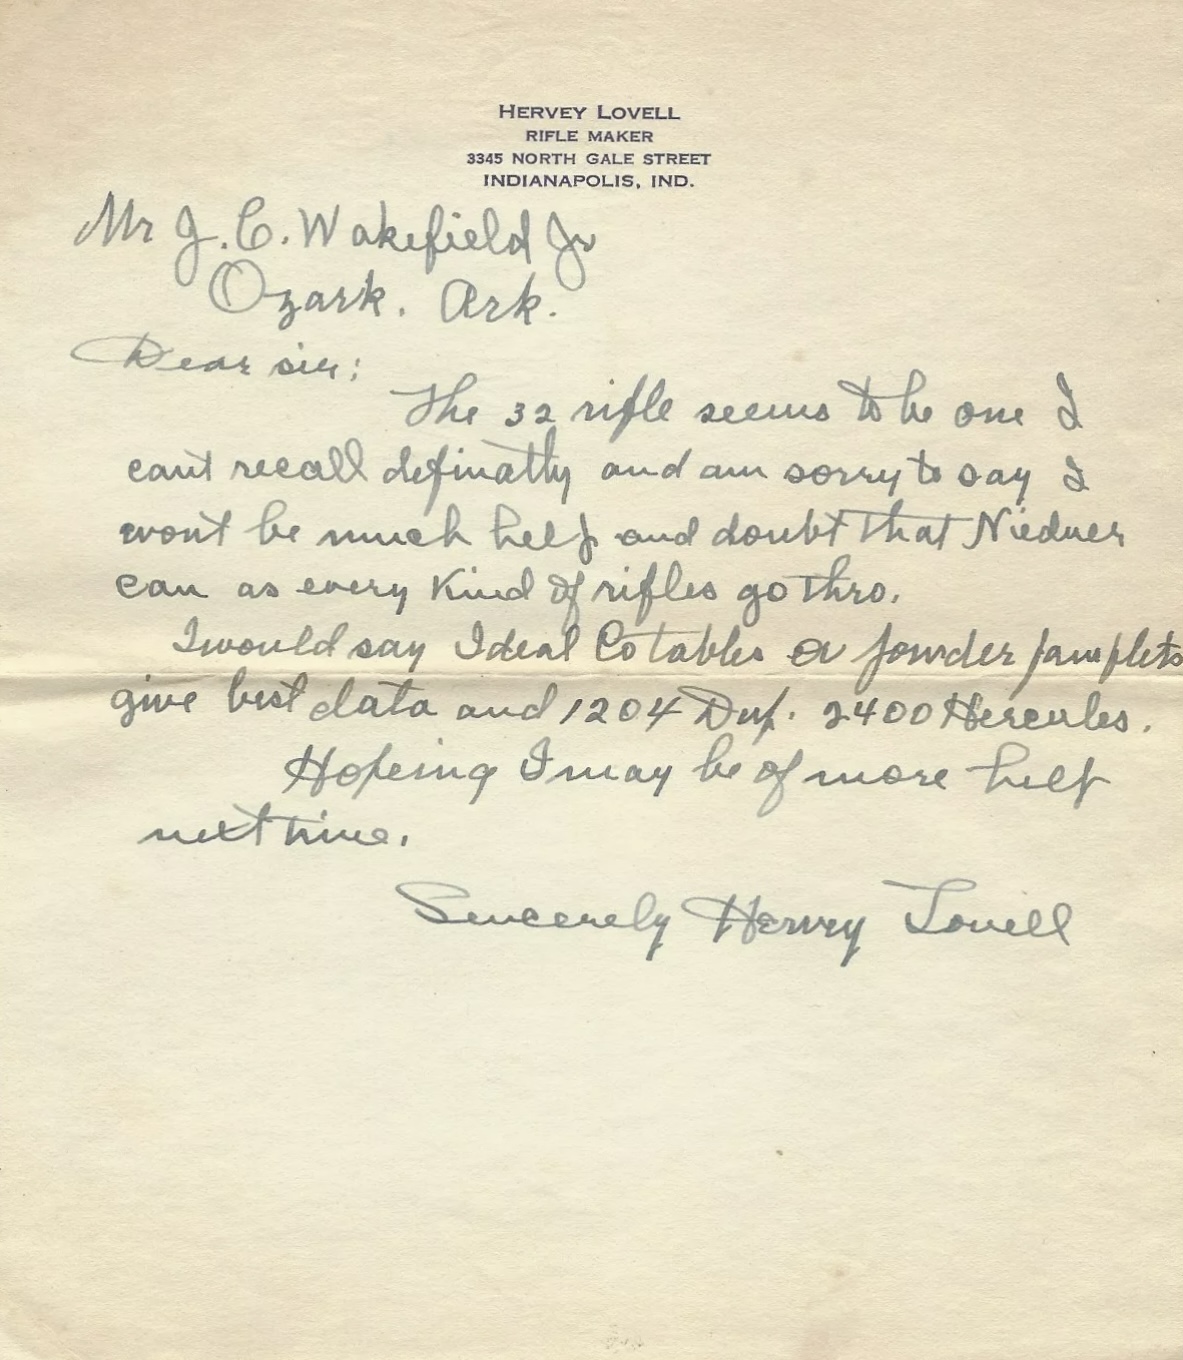 HERVEY LOVELL
RIFLE MAKER
3345 NORTH GALE STREET
INDIANAPOLIS, IND.
Mr J. C. Wakefield Jr
Ozark. Ark.
Dear sir:
The 32 rifle seems to be one I
cant recall definatly and am sorry to say I
wont be much help and doubt that Niedner
can as every Kind of rifles go thro.
I would say Ideal Co tables or powder pamplets
give best data and 1204 Dup. 2400 Hercules.
Hopeing I may be of more help
next time.
Sincerely Hervey Lovell